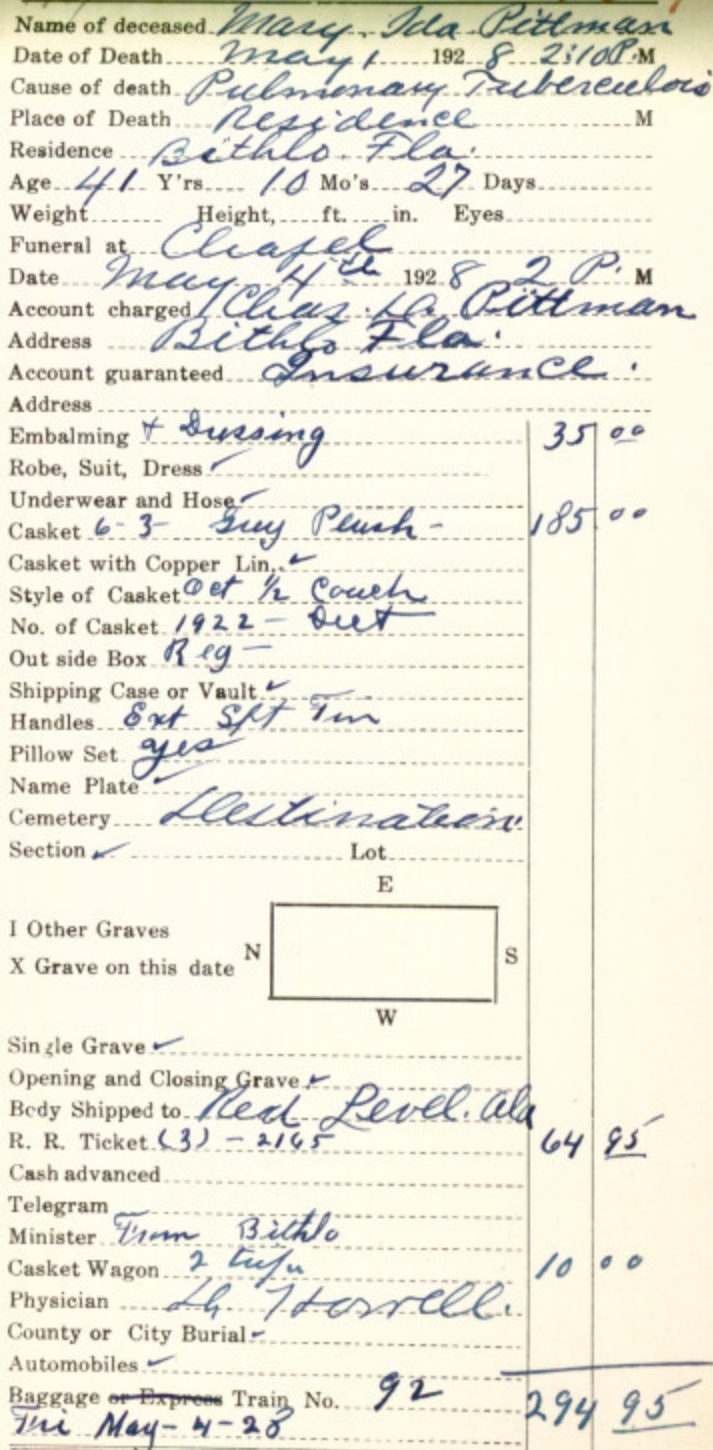 Name of deceased Mary Ida Pittman
Date of Death May 1 1928 2:10 P. M
Cause of death Pulmonary Tuberculois
Place of Death Residence M
Residence Bithlo. Fla.
Age 41 Y'rs 10 Mo's 27 Days
Weight Height, ft. in. Eyes
Funeral at Chapel
Date May 4th 1928 2 P. M
Account charged Chas. Pittman
Address Bithlo Fla.
Account guaranteed Insurance.
Address
Embalming + Dressing 35 00
Robe, Suit, Dress ✓
Underwear and Hose ✓
Casket 6-3- Grey Plush - 185 00
Casket with Copper Lin. ✓
Style of Casket Oct 1/2 Couch
No. of Casket 1922 -
Out side Box Reg -
Shipping Case or Vault ✓
Handles Ext
Pillow Set yes
Name Plate ✓
Cemetery Destination
Section ✓ Lot
E
I Other Graves
N S
X Grave on this date
W
Single Grave ✓
Opening and Closing Grave ✓
Body Shipped to Red Level. Ala
R. R. Ticket (3) - 2165 64 95
Cash advanced
Telegram
Minister From Bithlo
Casket Wagon 2 trips 10 00
Physician Howell.
County or City Burial ✓
Automobiles ✓
Baggage or Express Train No. 92 294 95
Fri May-4-28